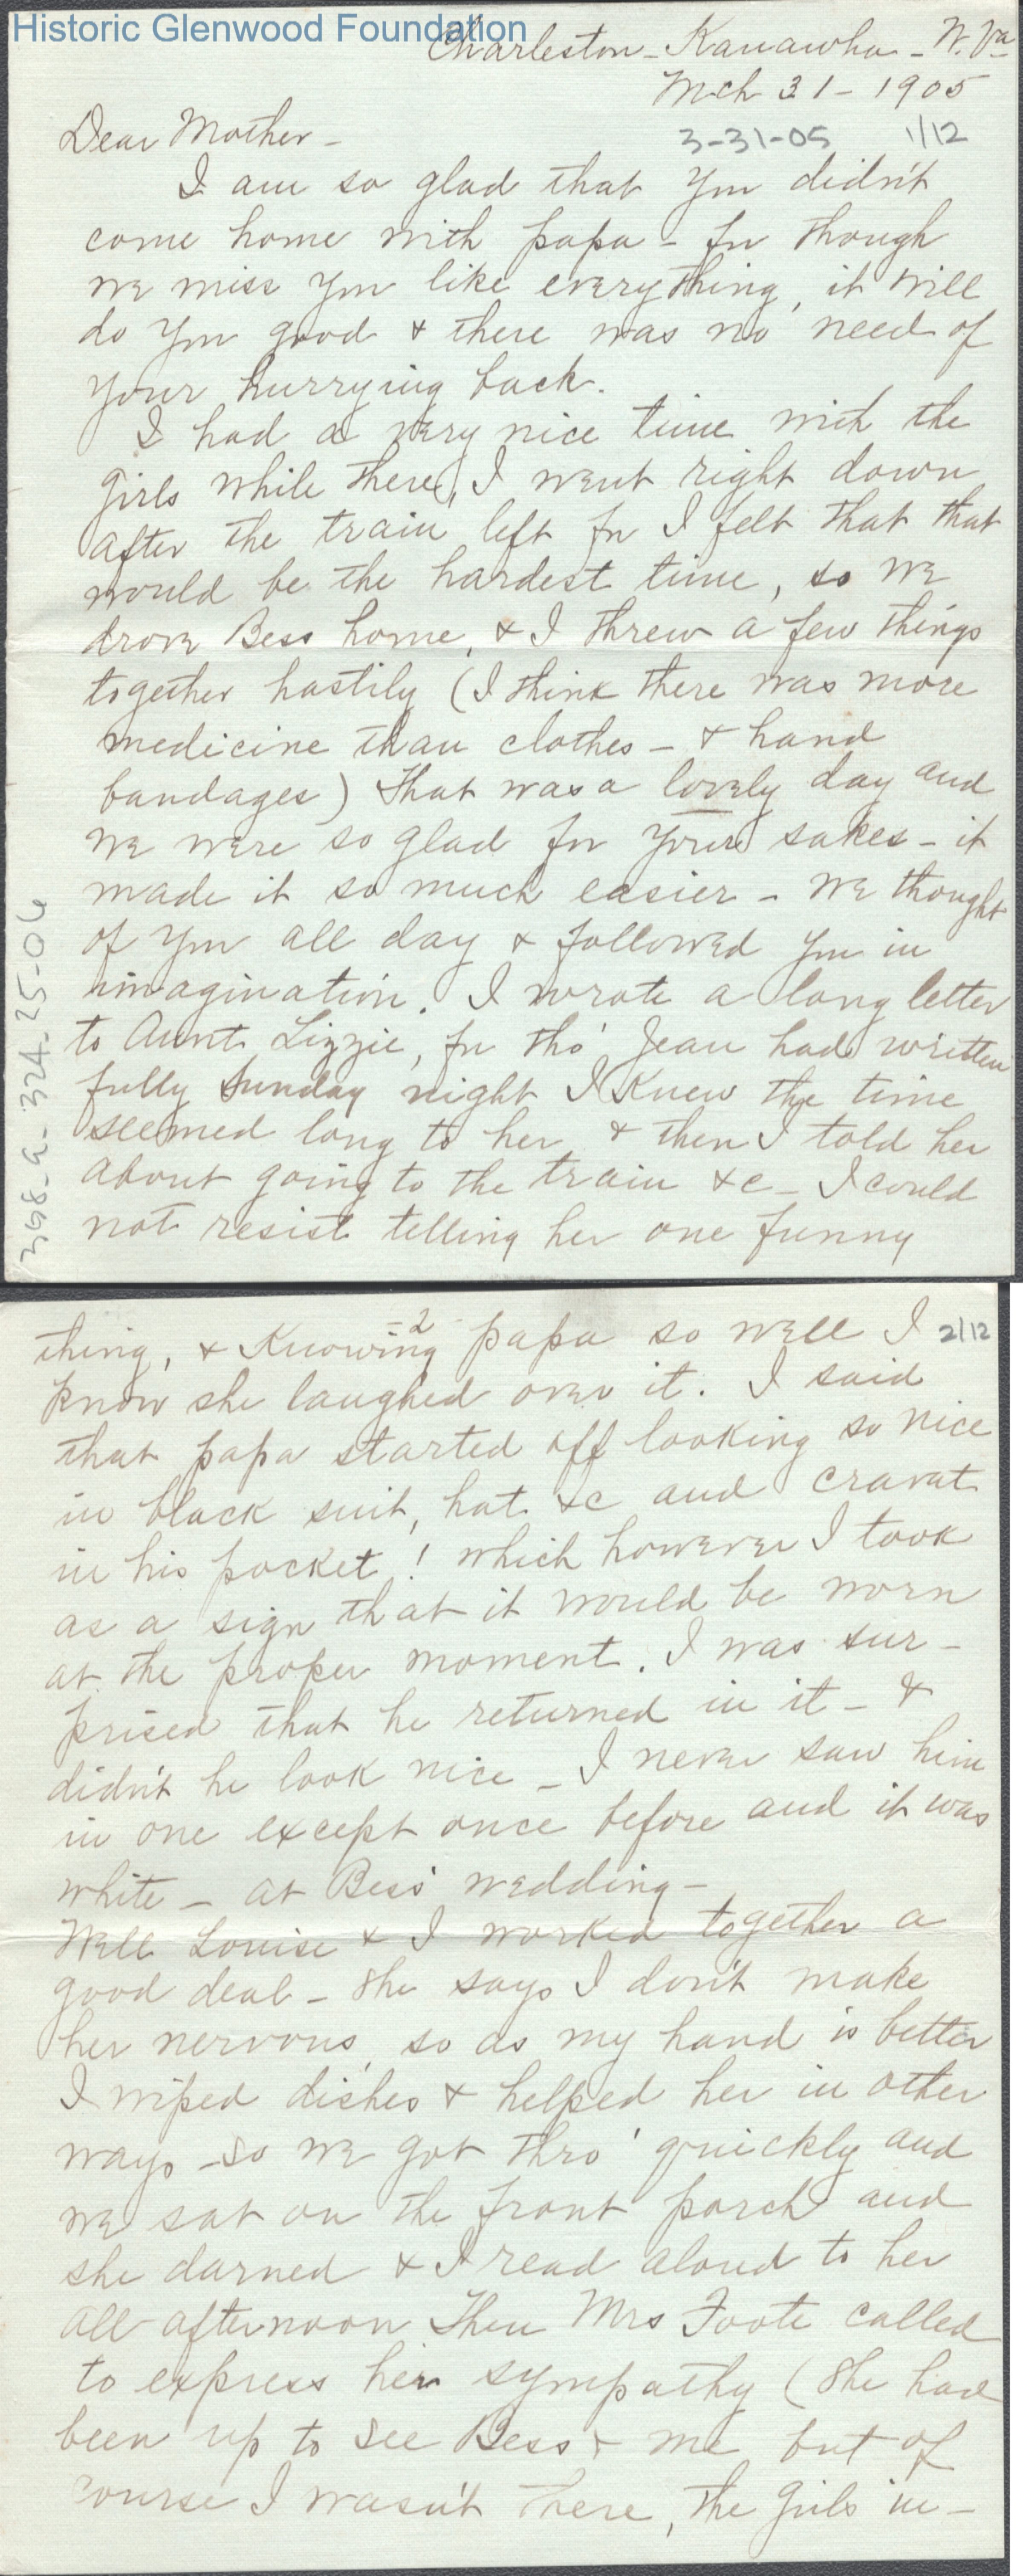 Historic Glenwood Foundation
Charleston - Kanawha - W. Va
Mch 31 - 1905
3-31-05 1/12
Dear Mother -
I am so glad that you didn't
come home with papa - for though
we miss you like everything, it will
do you good & there was no need of
your hurrying back.
I had a very nice time with the
girls while there, I went right down
after the train left for I felt that that
would be the hardest time, so we
drove Bess home, & I threw a few things
together hastily (I think there was more
medicine than clothes - & hand
bandages) That was a lovely day and
we were so glad for your sakes - it
made it so much easier - We thought
of you all day & followed you in
imagination. I wrote a long letter
to Aunt Lizzie, for tho' Jean had written
fully Sunday night I knew the time
seemed long to her, & then I told her
about going to the train &c - I could
not resist telling her one funny
398-a-324-25-06
-2
2/12
thing, & knowing papa so well I
know she laughed over it. I said
that papa started off looking so nice
in black suit, hat &c and cravat
in his pocket! which however I took
as a sign that it would be worn
at the proper moment. I was sur-
prised that he returned in it - &
didn't he look nice - I never saw him
in one except once before and it was
white - at Bess' wedding -
Well Louise & I worked together a
good deal - She says I don't make
her nervous, so as my hand is better
I wiped dishes & helped her in other
ways - so we got thro' quickly and
we sat on the front porch and
she darned & I read aloud to her
all afternoon Then Mrs Foote called
to express her sympathy (She had
been up to see Bess & me but of
course I wasn't there, the girls in-